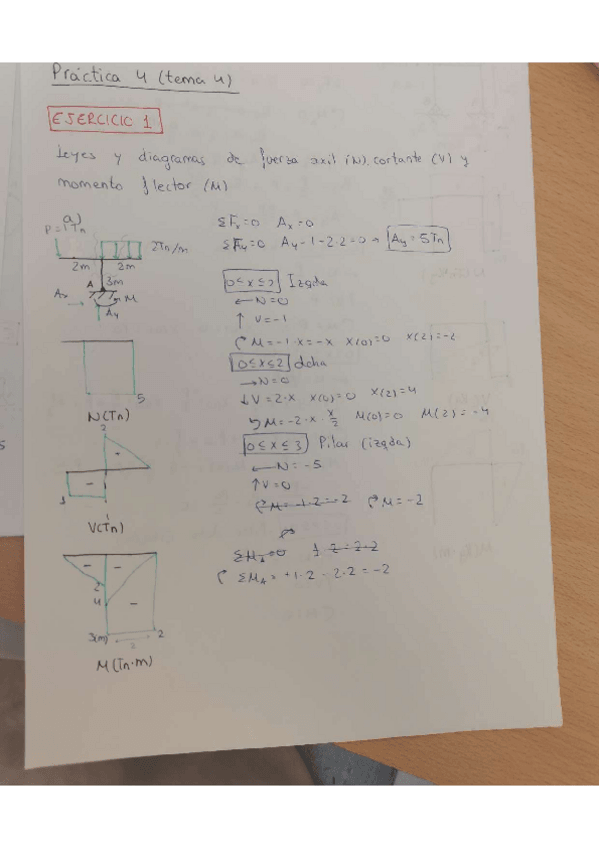 Práctica 4 (tema 4)
EJERCICIO 1
Leyes y diagramas de fuerza axil (N), cortante (V) y
momento flector (M)
a)
P=1Tn
2Tn/m
2m 2m
A 3m
Ax M
Ay
ΣFx=0 Ax=0
ΣFy=0 Ay-1-2·2=0 → Ay=5Tn
0≤x≤2 Izqda
← N=0
↑ V=-1
M=-1·x=-x x(0)=0 x(2)=-2
0≤x≤2 dcha
→ N=0
↓ V=2·x x(0)=0 x(2)=4
M=-2·x·x/2 M(0)=0 M(2)=-4
0≤x≤3 Pilar (izqda)
← N=-5
↑ V=0
M=-1·2=-2 M=-2
ΣMA=0 1·2=2·2
ΣMA=+1·2-2·2=-2
5
N(Tn)
+
-
V(Tn)
- -
2
4
-
3(m) 2
M(Tn·m)